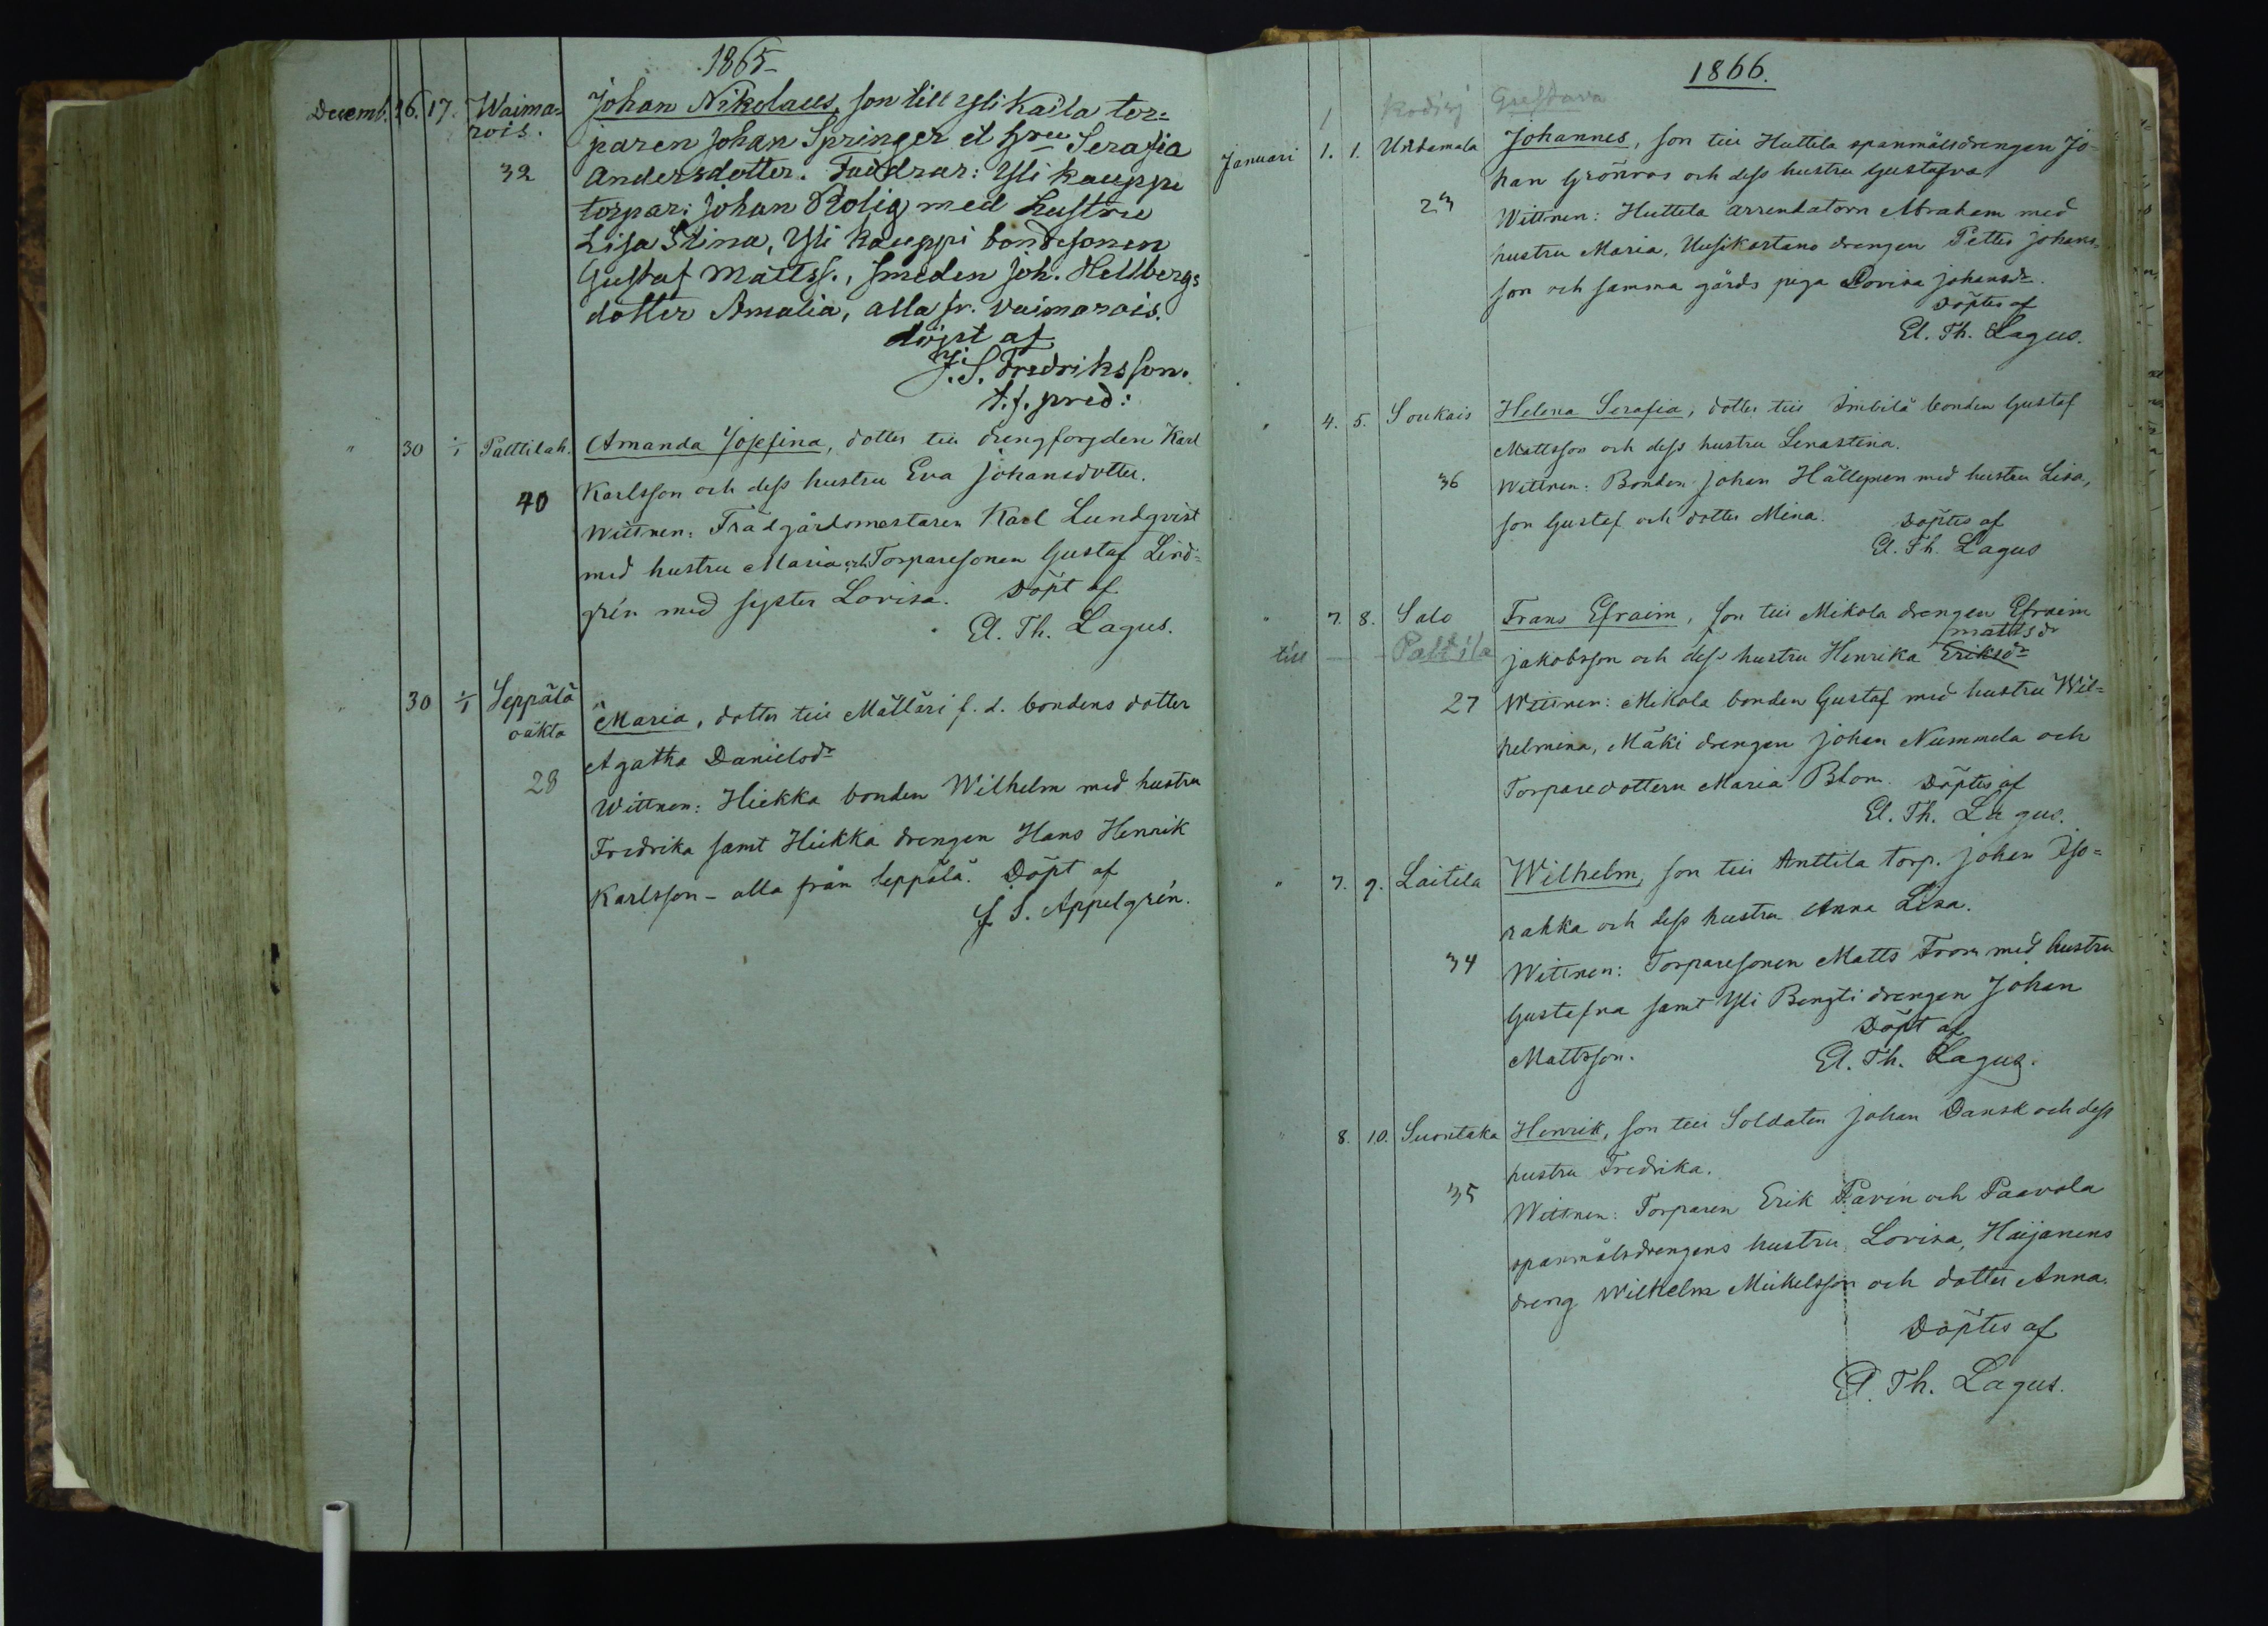 1865
Decemb. 16. 17. Waima=
rois.
32
Johan Nikolaus, son till Yli Kaila tor=
paren Johan Springer et Hru Serafia
Andersdotter. Faddrar: Yli Kauppi
torpar: Johan Rolig med hustru
Lisa Stina, Yli Kauppi bondesonen
Gustaf Mattss., smeden Joh. Hellbergs
dotter Amalia, alla fr. Vaimarois.
döpt af
J. S. Fredriksson.
t.f. pred:
" 30 1/1 Palttilah.
40
Amanda Josefina, dotter till drengfogden Karl
Karlsson och dess hustru Eva Johansdotter.
Wittnen: Trädgårdsmestaren Karl Lundqvist
med hustru Maria och Torparesonen Gustaf Lind=
grén med syster Lovisa. Döpt af
El. Th. Lagus.
" 30 1/1 Seppälä
oäkta
28
Maria, dotter till Mälläri f. d. bondens dotter
Agatha Danielsdr
Wittnen: Hiekka bonden Wilhelm med hustru
Fredrika samt Hiekka drengen Hans Henrik
Karlsson - alla från Seppälä. Döpt af
J. S. Appelgrén.
1866.
1 Kodisj Gustava
Januari 1. 1. Undamala
23
Johannes, son till Huttila spanmålsdrengen Jo=
han Grönros och dess hustru Gustafva
Wittnen: Huttila arrendatorn Abraham med
hustru Maria, Uusikartano drengen Petter Johans=
son och samma gårds piga Lovisa Johansdr.
Döptes af
El. Th. Lagus.
" 4. 5. Soukais
36
Helena Serafia, dotter till Imbilä bonden Gustaf
Mattsson och dess hustru Lenastina.
Wittnen: Bonden Johan Hällepren med hustru Lisa,
son Gustaf och dotter Mina. Döptes af
El. Th. Lagus
" 7. 8. Salo
till — — Palttila
27
Frans Efraim, son till Mikola drengen Efraim
Mattsdr
Jakobsson och dess hustru Henrika Eriksdr
Wittnen: Mikola bonden Gustaf med hustru Wil=
helmina, Mäki drengen Johan Nummela och
Torparedottern Maria Blom. Döptes af
El. Th. Lagus.
" 7. 9. Laitila
34
Wilhelm, son till Anttila torp. Johan Iso=
rahka och dess hustru Anna Lisa.
Wittnen: Torparesonen Matts From med hustru
Gustafva samt Yli Bengti drengen Johan
Döpt af
Mattsson. El. Th. Lagus.
" 8. 10. Suontaka
35
Henrik, son till Soldaten Johan Dansk och dess
hustru Fredrika.
Wittnen: Torparen Erik Pavén och Paavola
spanmålsdrengens hustru Lovisa, Haijanens
dreng Wilhelm Mickelsson och dotter Anna.
Döptes af
El. Th. Lagus.